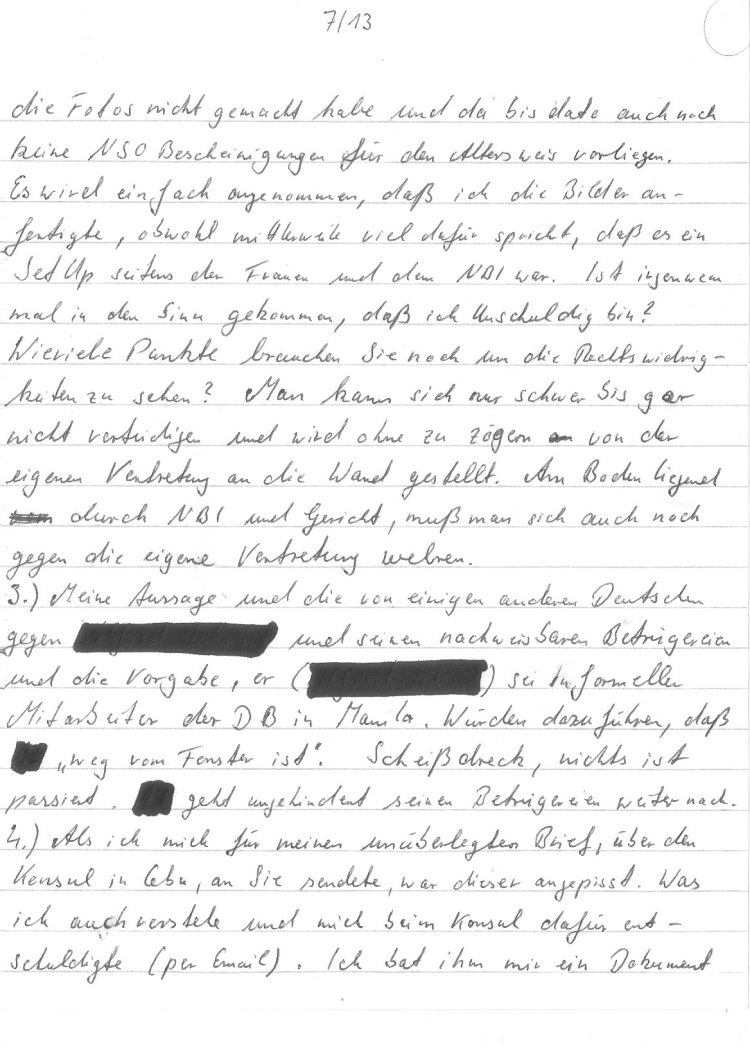 7/13
die Fotos nicht gemacht habe und da bis dato auch noch
keine NSO Bescheinigungen für den Altersweis vorliegen.
Es wird einfach angenommen, daß ich die Bilder an-
fertigte, obwohl mittlerweile viel dafür spricht, daß es ein
SetUp seitens der Frauen und dem NBI war. Ist irgenwem
mal in den Sinn gekommen, daß ich Unschuldig bin?
Wieviele Punkte brauchen Sie noch um die Rechtswidrig-
keiten zu sehen? Man kann sich nur schwer bis gar
nicht verteidigen und wird ohne zu zögern von der
eigenen Vertretung an die Wand gestellt. Am Boden liegend
durch NBI und Gericht, muß man sich auch noch
gegen die eigene Vertretung wehren.
3.) Meine Aussage und die von einigen anderen Deutschen
gegen und seinen nachweisbaren Betrügereien
und die Vorgabe, er ( ) sei Informeller
Mitarbeiter der DB in Manila. Würden dazu führen, daß
„weg vom Fenster ist". Scheißdreck, nichts ist
passiert. geht ungehindert seinen Betrügereien weiter nach.
4.) Als ich mich für meinen unüberlegten Brief, über den
Konsul in Cebu, an Sie sendete, war dieser angepisst. Was
ich auch verstehe und mich beim Konsul dafür ent-
schuldigte (per Email). Ich bat ihm mir ein Dokument